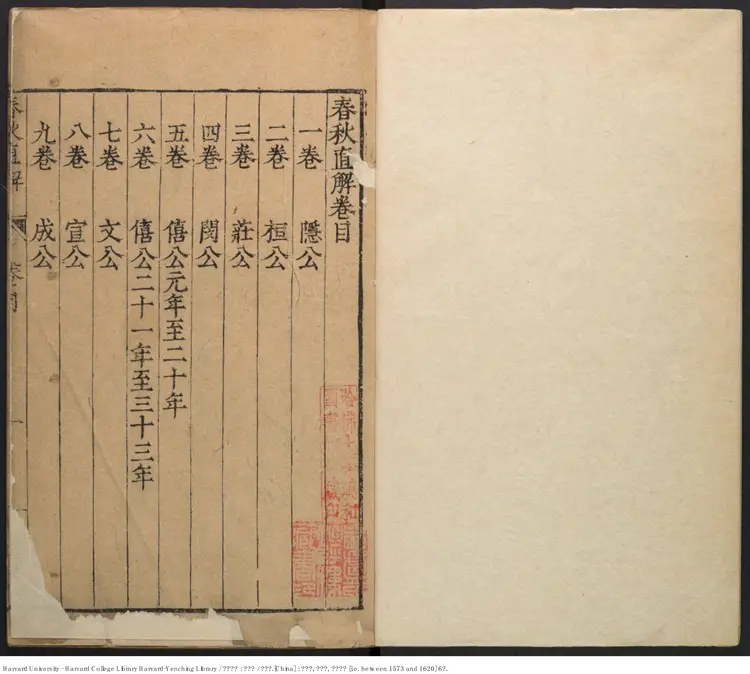 春秋直解卷目
一卷 隱公
二卷 桓公
三卷 莊公
四卷 閔公
五卷 僖公元年至二十年
六卷 僖公二十一年至三十三年
七卷 文公
八卷 宣公
九卷 成公
春秋直解 卷目 一
Harvard University - Harvard College Library Harvard-Yenching Library / ???? : ??? / ???.[China] : ???, ???, ???? [i.e. between 1573 and 1620] 6?.